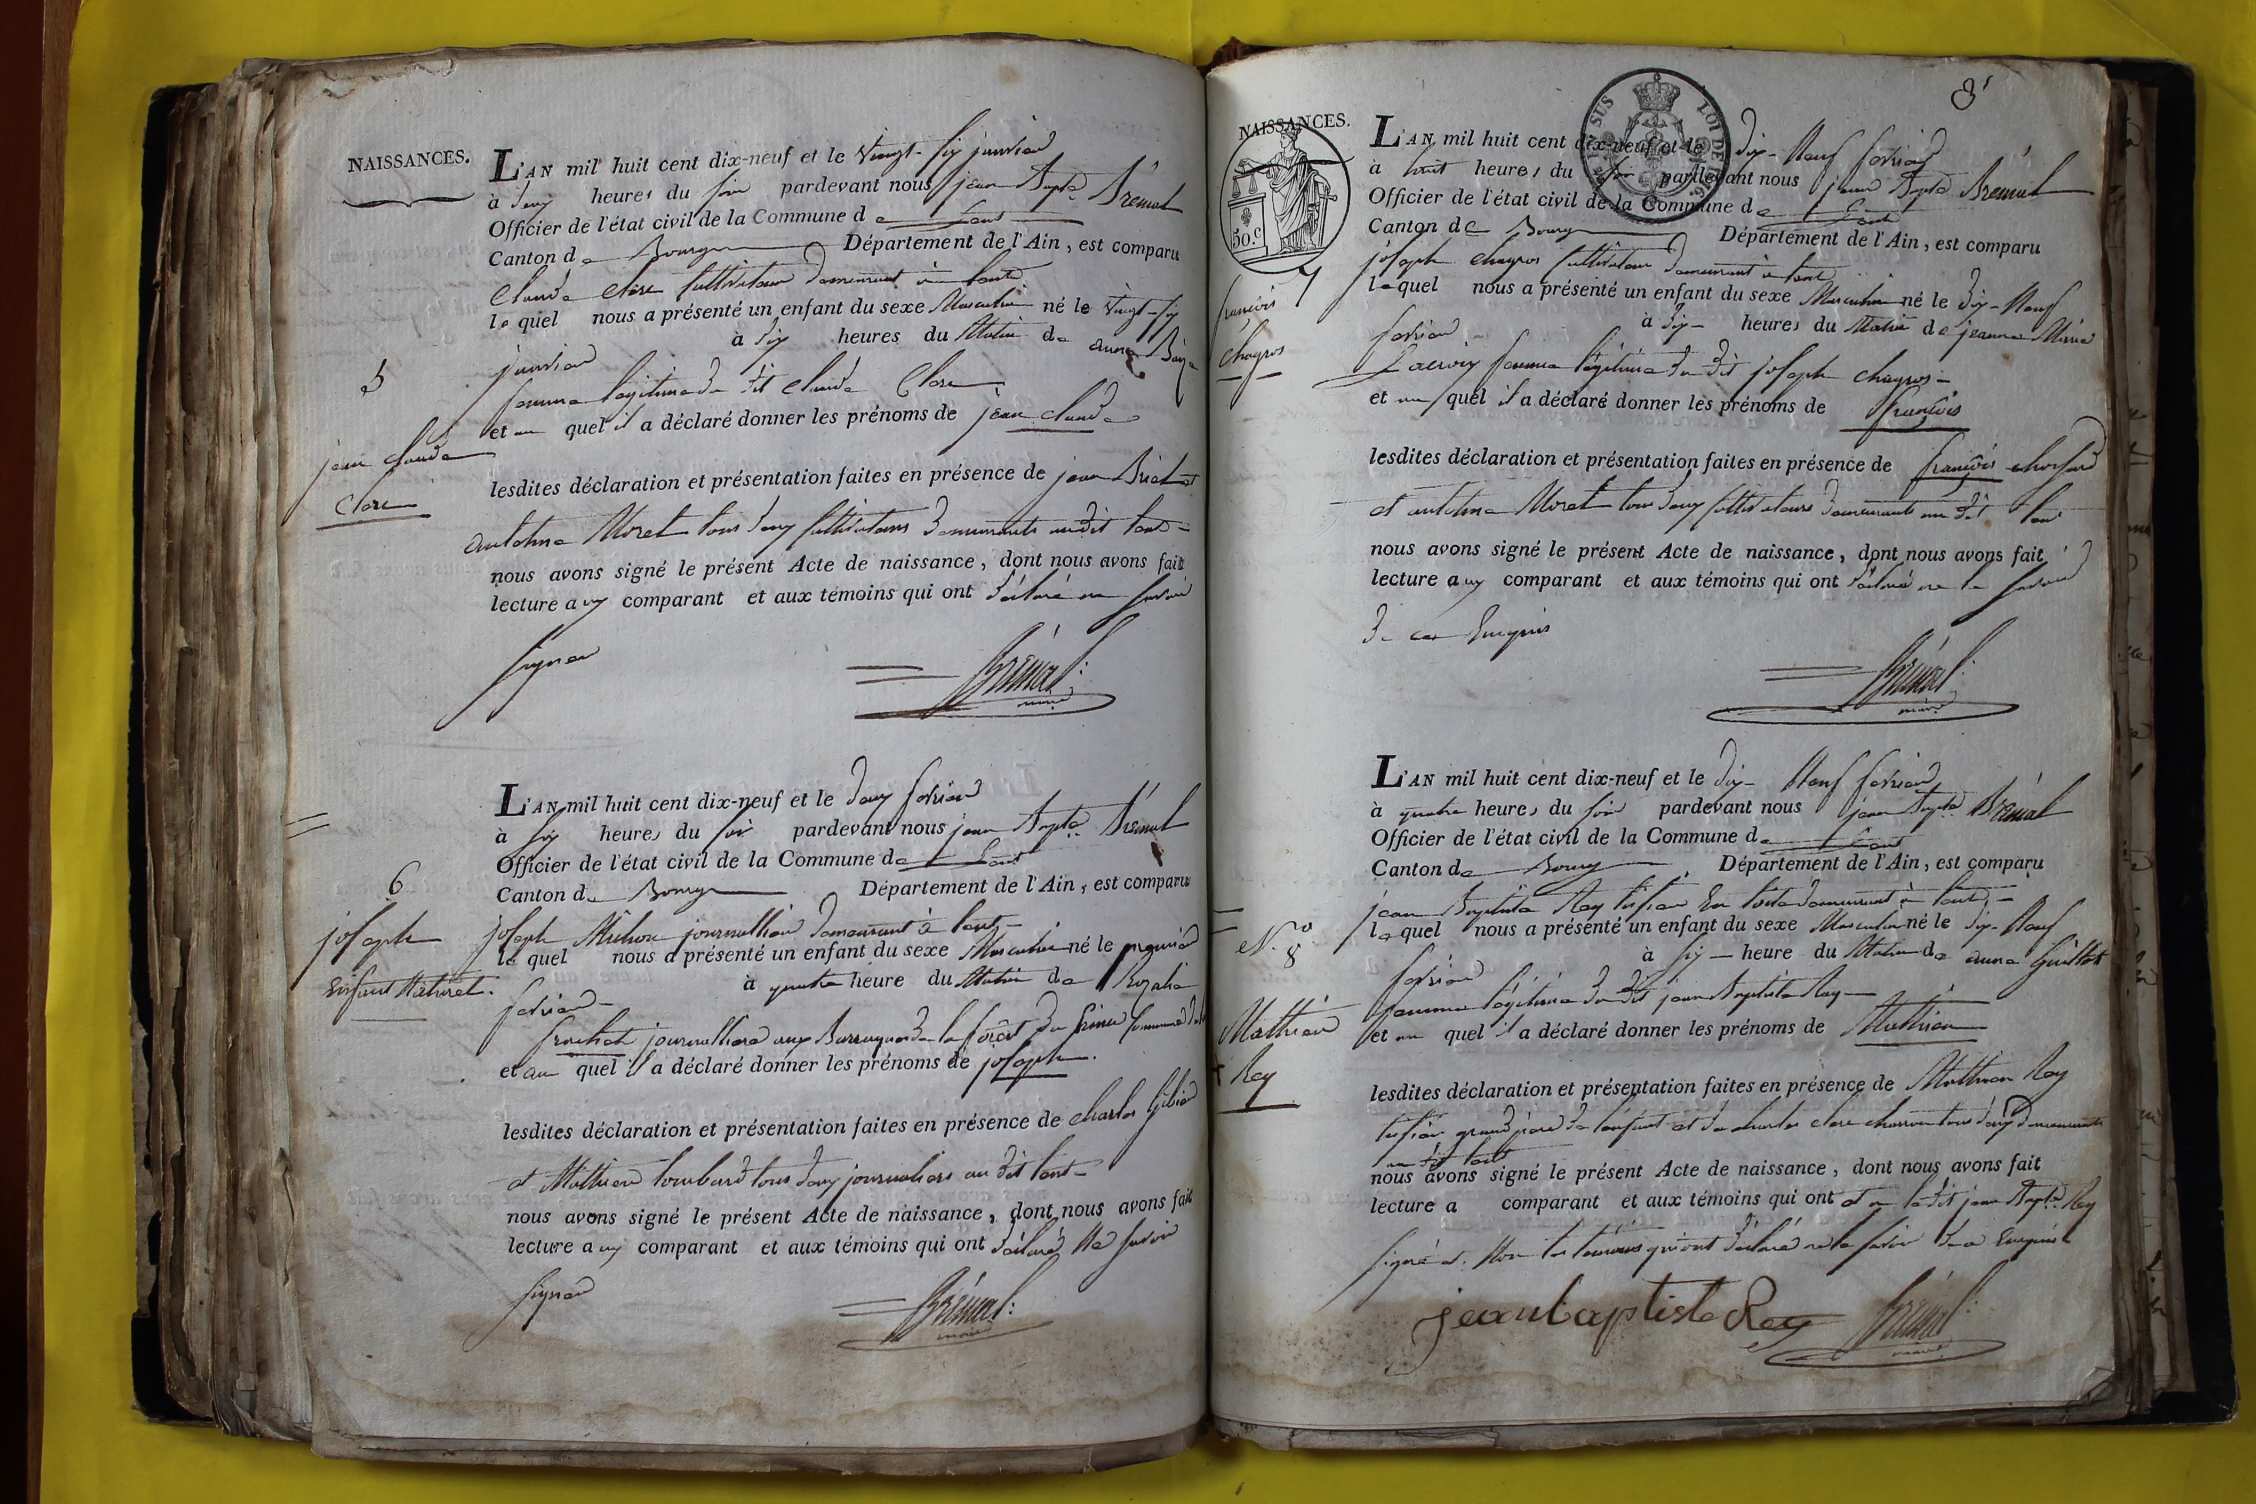 NAISSANCES.
L'AN mil huit cent dix-neuf et le vingt-six janvier
à deux heures du soir pardevant nous jean Bapte. Brémal
Officier de l'état civil de la Commune de
Canton de Bourg Département de l'Ain, est comparu
Claude Clere cultivateur demeurant à
lequel nous a présenté un enfant du sexe Masculin né le vingt-six
janvier à six heures du Matin de anne
femme légitime du dit Claude Clere
et au quel il a déclaré donner les prénoms de jean claude
5
jean claude
Clere
lesdites déclaration et présentation faites en présence de jean
antoine Moret tous deux cultivateurs demeurants au dit
nous avons signé le présent Acte de naissance, dont nous avons fait
lecture aux comparant et aux témoins qui ont déclaré ne savoir
signer
Brémal:
maire
L'AN mil huit cent dix-neuf et le deux fevrier
à six heures du soir pardevant nous jean Bapte. Brémal
Officier de l'état civil de la Commune de
Canton de Bourg Département de l'Ain, est comparu
joseph journallier demeurant à
lequel nous a présenté un enfant du sexe Masculin né le premier
fevrier à quatre heure du Matin de Rozalie
journalliere aux de la forêt de commune
et au quel il a déclaré donner les prénoms de joseph.
6
joseph
Enfant Naturel.
lesdites déclaration et présentation faites en présence de charles
et Mathieu tous deux journaliers au dit
nous avons signé le présent Acte de naissance, dont nous avons fait
lecture aux comparant et aux témoins qui ont déclaré Ne savoir
signer
Brémal:
maire
3
NAISSANCES.
50.c
LOI DE 1816.
EN SUS
L'AN mil huit cent dix-neuf et le dix-Neuf fevrier
à huit heures du soir pardevant nous jean Bapte. Brémal
Officier de l'état civil de la Commune de
Canton de Bourg Département de l'Ain, est comparu
joseph chagros cultivateur demeurant à
lequel nous a présenté un enfant du sexe Masculin né le dix-Neuf
fevrier à dix heures du Matin de jeanne Marie
Lacroix femme légitime du dit joseph chagros
et au quel il a déclaré donner les prénoms de françois
7
françois
chagros
lesdites déclaration et présentation faites en présence de françois
et antoine Moret tous deux cultivateurs demeurants au dit
nous avons signé le présent Acte de naissance, dont nous avons fait
lecture aux comparant et aux témoins qui ont déclaré ne le savoir
de ce Enquis
Brémal:
maire
L'AN mil huit cent dix-neuf et le dix-Neuf fevrier
à quatre heures du soir pardevant nous jean Bapte. Brémal
Officier de l'état civil de la Commune de
Canton de Bourg Département de l'Ain, est comparu
jean Baptiste Rey tissier En toile demeurant à
lequel nous a présenté un enfant du sexe Masculin né le dix-Neuf
fevrier à six heure du Matin de anne Guillot
femme légitime du dit jean Baptiste Rey
et au quel il a déclaré donner les prénoms de Mathieu
N.o 8
Mathieu
Rey
lesdites déclaration et présentation faites en présence de Mathieu Rey
tissier grand père de l'enfant et de charles clere charron tous deux demeurants
au dit
nous avons signé le présent Acte de naissance, dont nous avons fait
lecture a comparant et aux témoins qui ont et a le dit jean Bapte. Rey
signé et Non les témoins qui ont déclaré ne le savoir de ce Enquis
jean baptiste Rey
Brémal:
maire